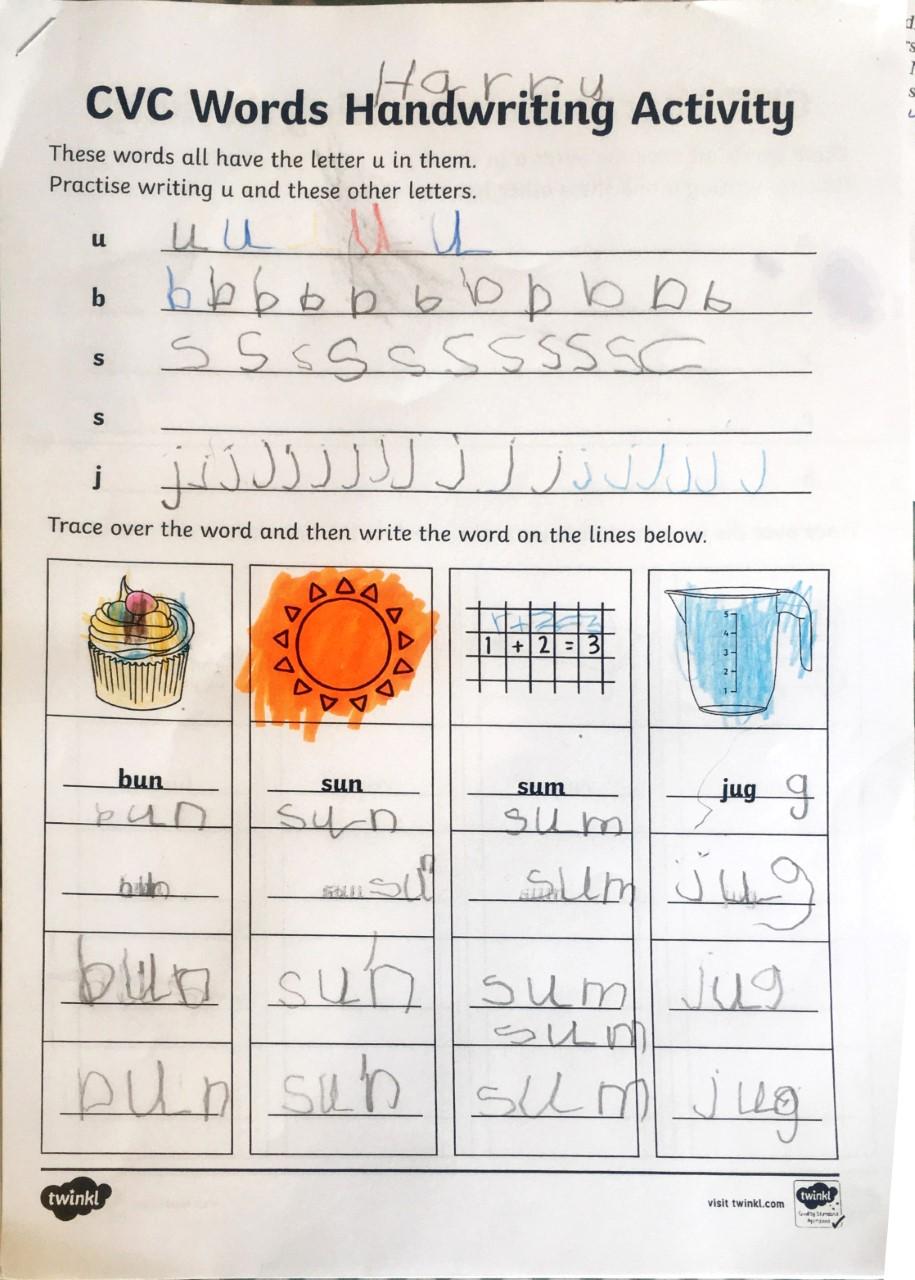 Harry
CVC Words Handwriting Activity
These words all have the letter u in them.
Practise writing u and these other letters.
u u u u u
b b b b b b b b b b b b
s s s s s s s s s s s s
s
j j j j j j j j j j j j j j j j j j
Trace over the word and then write the word on the lines below.
5
4
1 + 2 = 3 3
2
1
bun sun sum jug g
bun sun sum
bun sun sun sum sum jug jug
bun sun sum jug
sum
bun sun sum jug
twinkl visit twinkl.com twinkl
Quality Standard
Approved